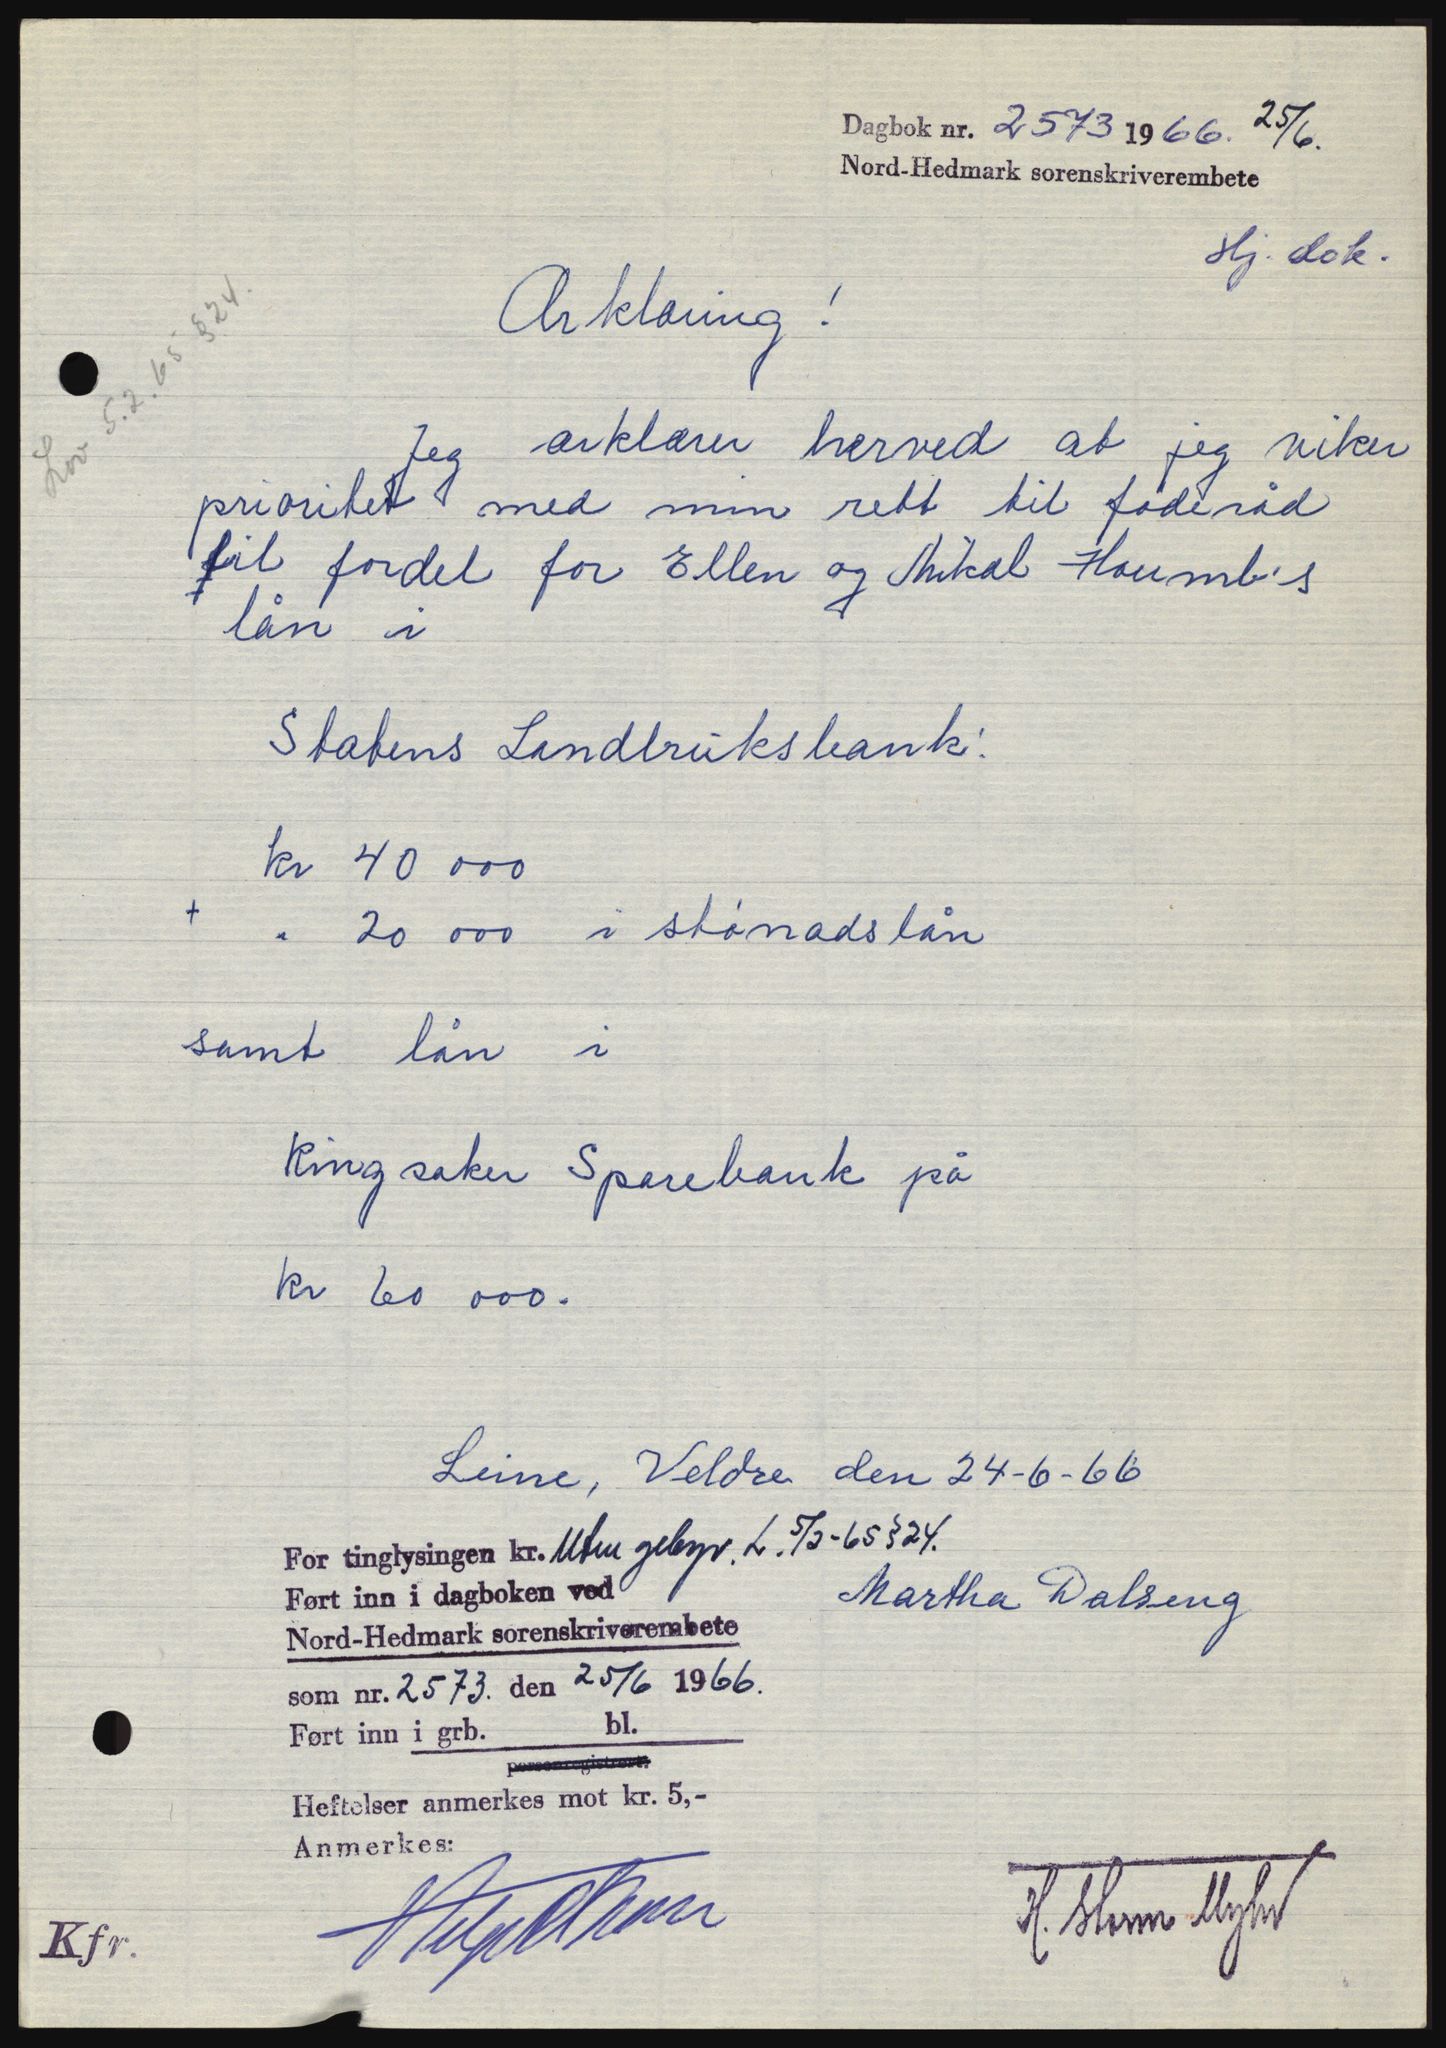 Dagbok nr. 2573 1966. 25/6.
Nord-Hedmark sorenskriverembete
Hj. dok.
Lov 5.2.65 § 24.
Ærklæring!
Jeg ærklærer herved at jeg viker
prioritet med min rett til føderåd
til fordel for Ellen og Mikal Houmb's
lån i
Statens Landbruksbank:
kr 40 000
+ " 20 000 i stønadslån
samt lån i
Ringsaker Sparebank på
kr 60 000.
Leine, Veldre den 24-6-66
For tinglysingen kr. Uten gebyr. L. 5/2-65 § 24.
Martha Dalseng
Ført inn i dagboken ved
Nord-Hedmark sorenskriverembete
som nr. 2573. den 25/6 1966.
Ført inn i grb. bl.
personregistret.
Heftelser anmerkes mot kr. 5,-
Anmerkes:
H. Storm Myhr
Kfr.